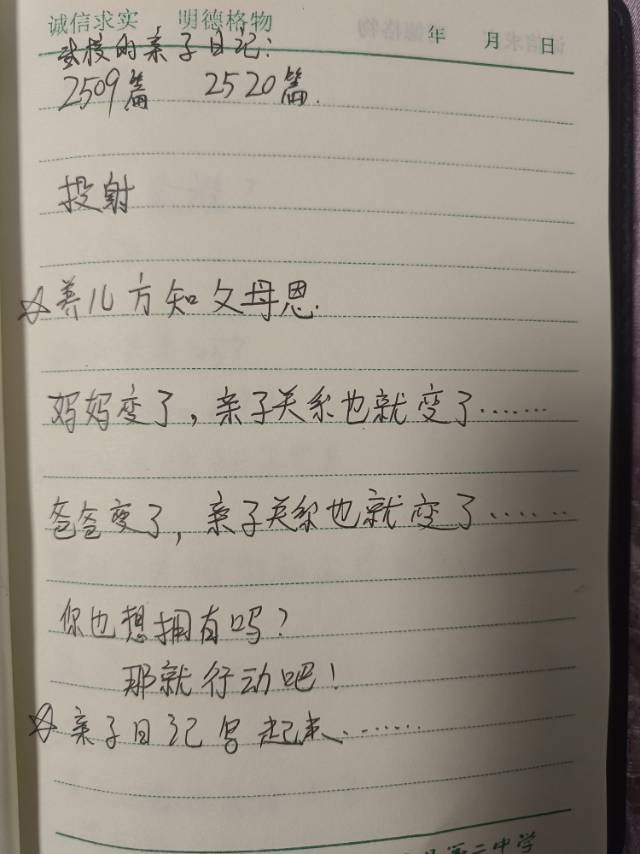 诚信求实 明德格物
年 月 日
我校的亲子日记:
2509篇 2520篇.
投射
☆养儿方知父母恩.
妈妈变了,亲子关系也就变了.......
爸爸变了,亲子关系也就变了......
你也想拥有吗?
那就行动吧!
☆亲子日记写起来.......
第二中学